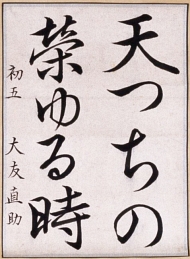 天つちの
榮ゆる時
初五 大友直助